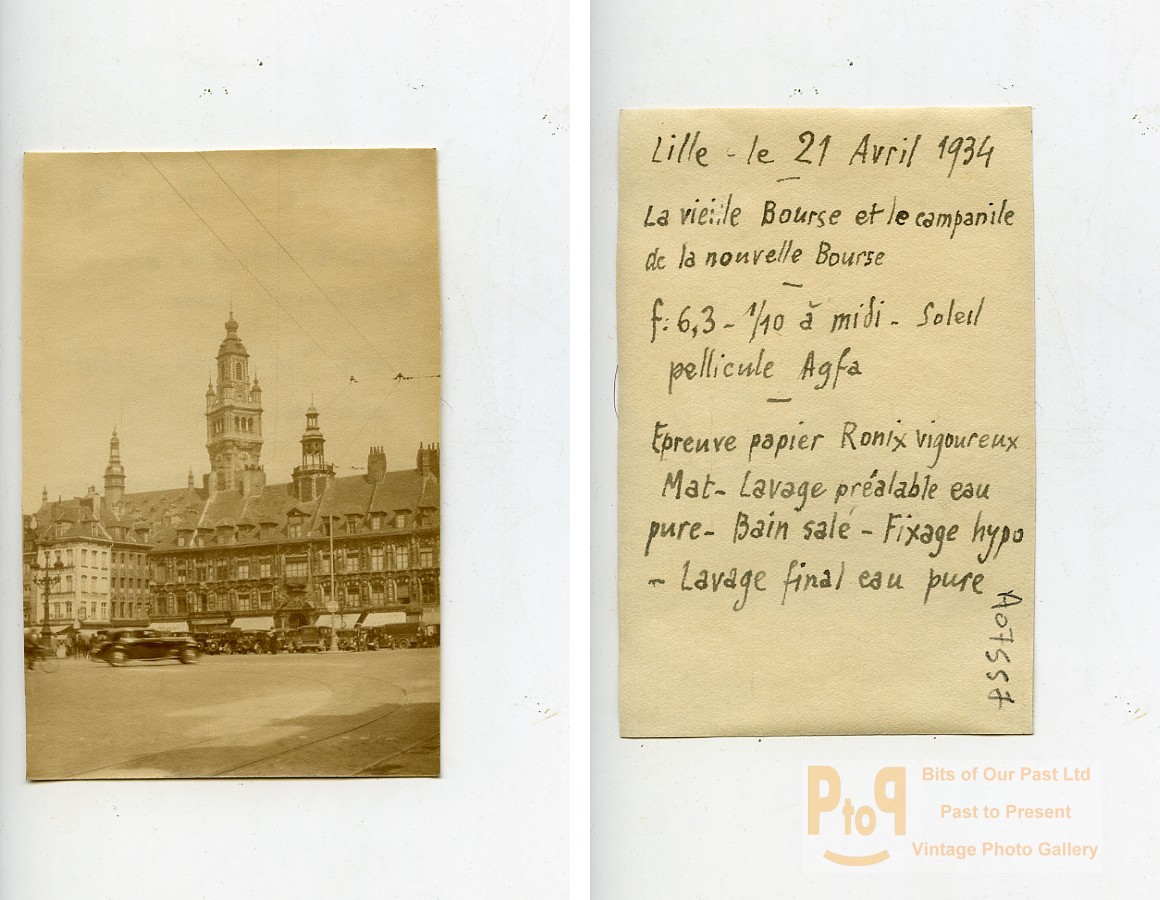 Lille - le 21 Avril 1934
La vieille Bourse et le campanile
de la nouvelle Bourse
f: 6,3 - 1/10 à midi - Soleil
pellicule Agfa
Epreuve papier Ronix vigoureux
Mat - Lavage préalable eau
pure - Bain salé - Fixage hypo
- Lavage final eau pure
A07557
PtoP
Bits of Our Past Ltd
Past to Present
Vintage Photo Gallery